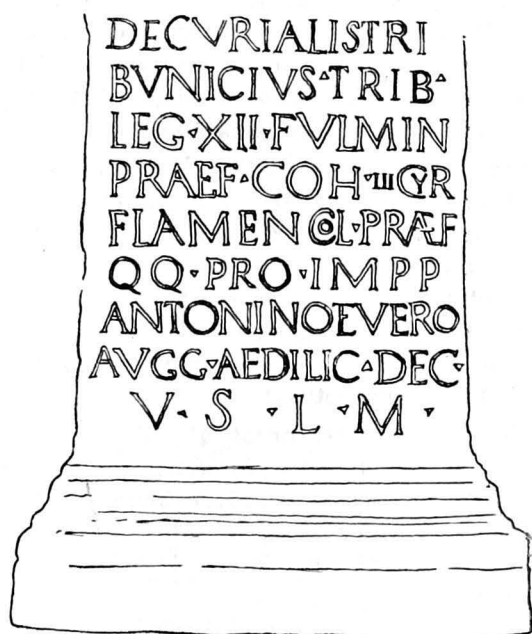 DECVRIALIS TRI
BVNICIVS▵TRIB▵
LEG▿XII▿FVLMIN
PRAEF▵COH▿III CYR
FLAMEN COL▿PRÆF
QQ▿PRO▿IMPP
ANTONINO E VERO
AVGG▿AEDILIC▵DEC▿
V▿S▿L▿M▿